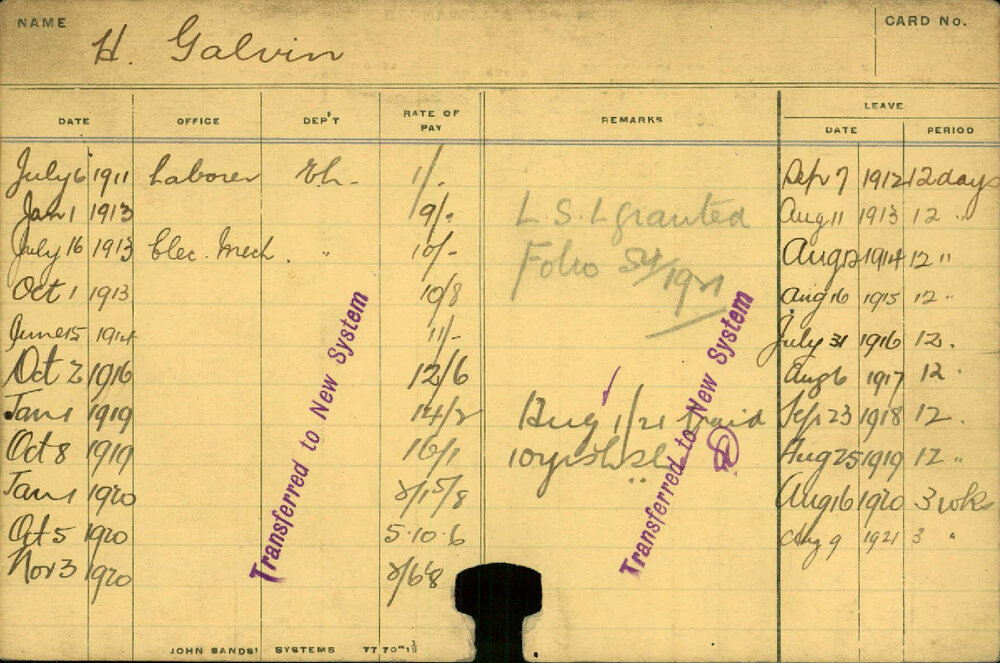 NAME H. Galvin CARD No.
LEAVE
DATE OFFICE DEP'T RATE OF PAY REMARKS DATE PERIOD
July 6 1911 Laborer Eh. Sep 7 1912 12 days
Jan 1 1913 9/- L.S.L granted Aug 11 1913 12 "
July 16 1913 Elec. Mech. " 10/- Folio 54/1921 Aug 12 1914 12 "
Oct 1 1913 10/8 Aug 16 1915 12 "
June 15 1914 11/- July 31 1916 12 .
Oct 2 1916 12/6 Aug 6 1917 12 .
Jan 1 1919 14/2 Aug 1/21 Sep 23 1918 12 .
Oct 8 1919 16/1 10 yrs Aug 25 1919 12 "
Jan 1 1920 Aug 16 1920 3 wks
Oct 5 1920 5.10.6 Aug 9 1921 3 "
Nov 3 1920
Transferred to New System
Transferred to New System
JOHN SANDS' SYSTEMS